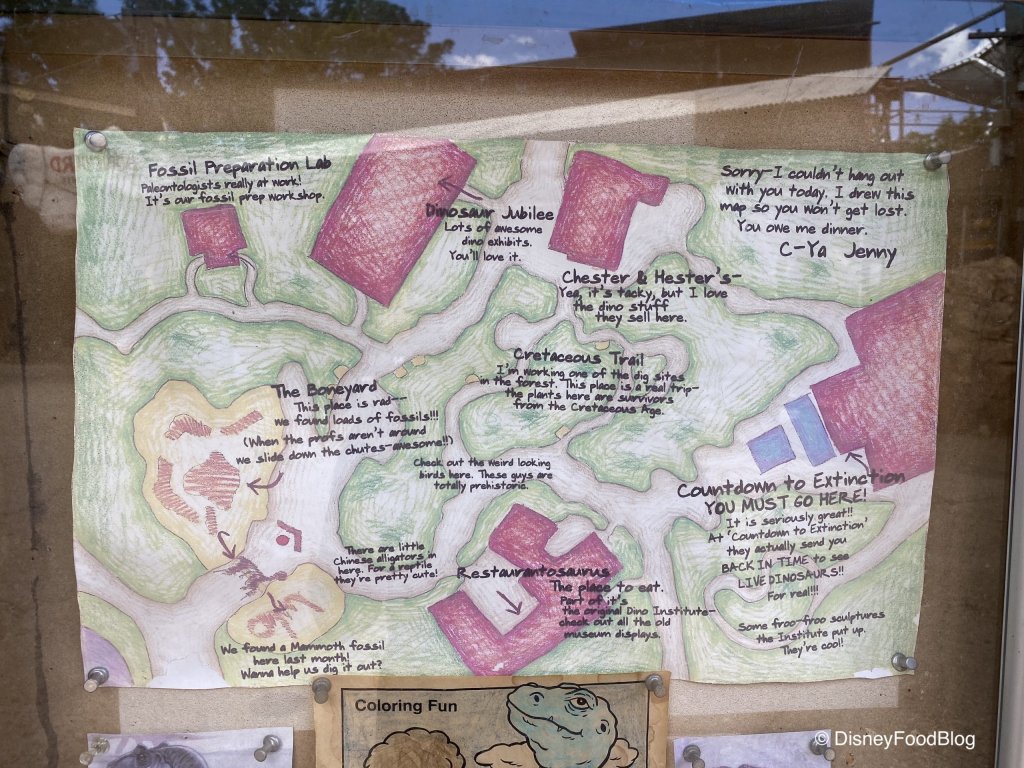 Fossil Preparation Lab
Paleontologists really at work!
It's our fossil prep workshop.
Dinosaur Jubilee
Lots of awesome
dino exhibits.
You'll love it.
Sorry-I couldn't hang out
with you today. I drew this
map so you won't get lost.
You owe me dinner.
C-Ya Jenny
Chester & Hester's-
Yea, it's tacky, but I love
the dino stuff
they sell here.
Cretaceous Trail
I'm working one of the dig sites
in the forest. This place is a real trip-
the plants here are survivors
from the Cretaceous Age.
The Boneyard
This place is rad--
we found loads of fossils!!!
(When the profs aren't around
we slide down the chutes-awesome!!)
Check out the weird looking
birds here. These guys are
totally prehistoric.
Countdown to Extinction
YOU MUST GO HERE!
It is seriously great!!
At 'Countdown to Extinction'
they actually send you
BACK IN TIME to see
LIVE DINOSAURS!!
For real!!!
There are little
Chinese alligators in
here. For a reptile
they're pretty cute!
Restaurantosaurus
The place to eat.
Part of it's
the original Dino Institute-
check out all the old
museum displays.
Some froo-froo sculptures
the Institute put up.
They're cool!
We found a Mammoth fossil
here last month!
Wanna help us dig it out?
Coloring Fun
© DisneyFoodBlog